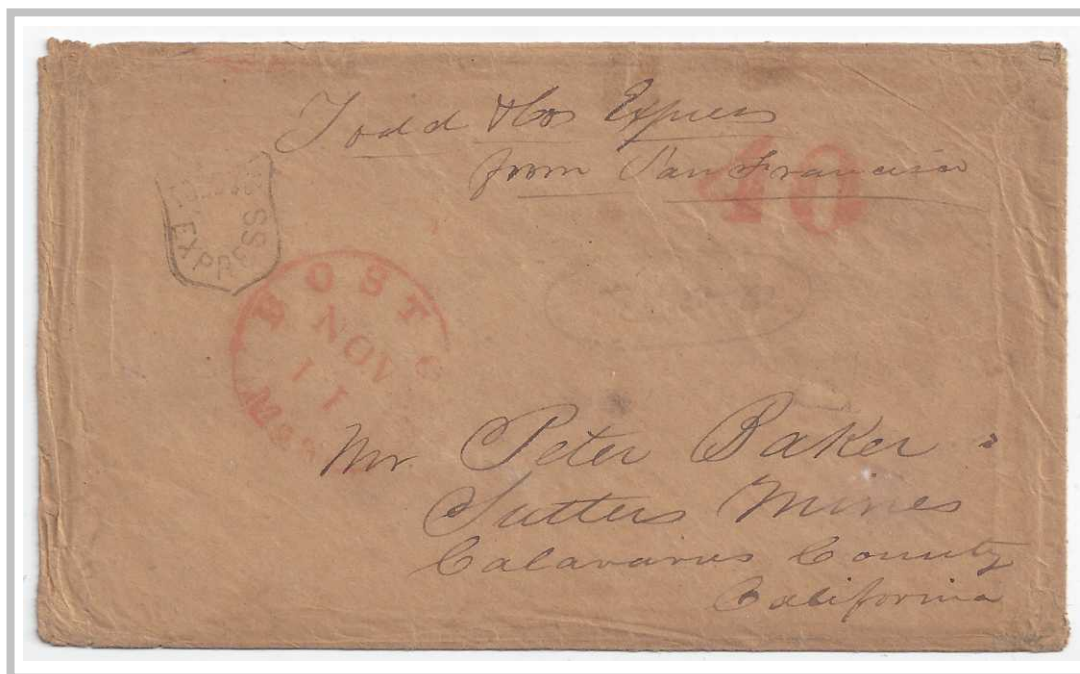 Todd & Cos Express
from San Francisco
40
EXPRESS
BOSTO
NOV
11
Mr. Peter Baker
Sutters Mines
Calavarus County
California